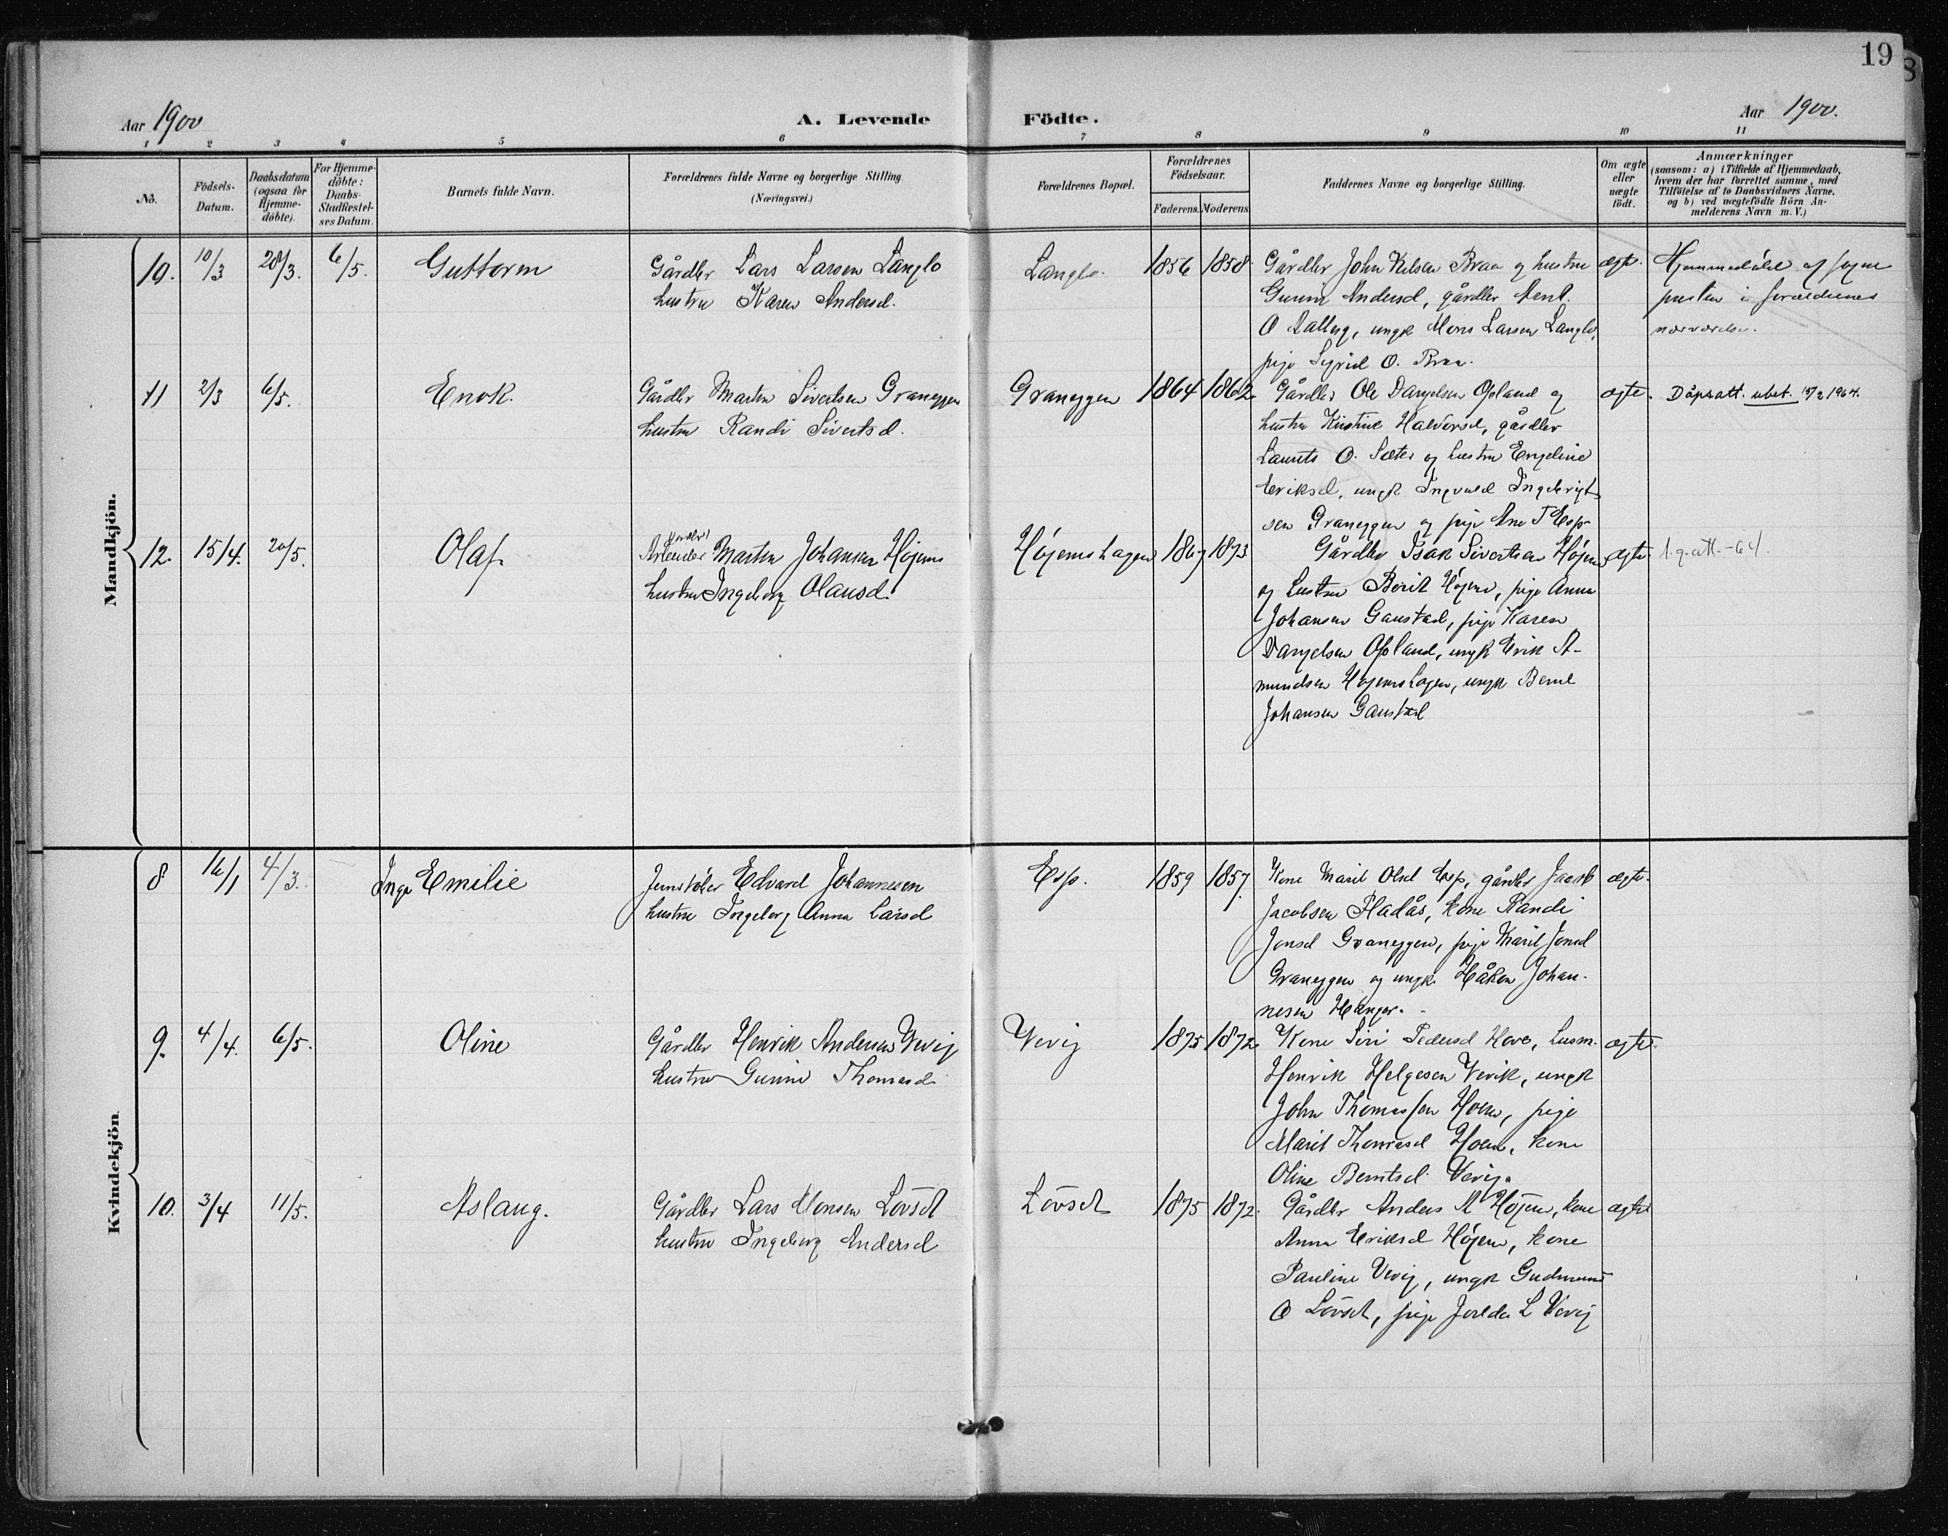 19
Aar 1900 A. Levende Födte. Aar 1900.
1 2 3 4 5 6 7 8 9 10 11
No.
Födsels-Datum.
Daabsdatum (ogsaa for Hjemmedöbte).
For Hjemmedöbte: Daabs-Stadfæstelses Datum.
Barnets fulde Navn.
Forældrenes fulde Navne og borgerlige Stilling. (Næringsvei.)
Forældrenes Bopæl.
Forældrenes Födselsaar.
Faderens. Moderens.
Faddernes Navne og borgerlige Stilling.
Om ægte eller uægte födt.
Anmærkninger
(saasom: a) i Tilfælde af Hjemmedaab,
hvem der har forrettet samme, med
Tilföielse af to Daabsvidners Navne,
og b) ved uægtefödte Börn Anmelderens Navn m. V.)
Mandkjön.
10. 10/3 28/3. 6/5. Guttorm
Gårdbr Lars Larsen Langlo
hustru Karen Andersd.
Langlo. 1856 1858
Gårdbr John Nilsen Braa og hustru
Gunni Andersd, gårdbr Arnt.
O Dalberg, ungk Mons Larsen Langlo,
pige Sigrid O. Braa.
ægte.
Hjemmedøbt af sogne
presten i forældrenes
nærværelse.
11 2/3 6/5. Enok.
Gårdbr Martin Sivertsen Graneggen
hustru Randi Sivertsd.
Graneggen 1864 1862
Gårdbr Ole Danielsen Opland og
hustru Kirstine Halvorsd, gårdbr
Laurits O. Sæter og hustru Engeline
Eriksd, ungk Ingvald Ingebrigt-
sen Graneggen og pige Ane T Esp
ægte.
Dåpsatt. ubet. 15/2 1964.
12. 15/4. 20/5. Olaf.
Arbeider Martin Johansen Højem
hustru Ingeborg Olausd.
Højemshagen 1867 1873
Gårdbr Isak Sivertsen Højem
og hustru Berit Højem, pige Anna
Johansen Gaustad, pige Karen
Danielsen Opland, ungk Erik A-
mundsen Højemshagen, ungk Bernt
Johansen Gaustad
ægte.
1.g. att. -64.
Kvindekjön
8 16/1 4/3. Inga Emilie
Edvard Johannesen
hustru Ingeborg Anna Larsd
Esp. 1859 1857.
Kone Marit Olsd Esp, gårdbr Jacob
Jacobsen Fladås, kone Randi
Jonsd Graneggen, pige Marit Jonsd
Graneggen og ungk. Håkon Johan-
nesen Hanger.
ægte.
9. 4/4. 6/5. Oline
Gårdbr Henrik Andersen Vevig
hustru Gunni Thomasd.
Vevig 1875 1872
Kone Siri Pedersd Hove, husm.
Henrik Helgesen Vevik, ungk
John Thomassen Hoem, pige
Marit Thomasd Hoem, kone
Oline Berntsd. Vevig.
ægte.
10. 3/4 11/5. Aslaug.
Gårdbr Lars Monsen Løvset
hustru Ingeborg Andersd
Løvset 1875 1872.
Gårdbr Anders M Højem, kone
Anna Eriksd Højem, kone
Pauline Vevig, ungk Gudmund
O Løvset, pige L Vevig
ægte